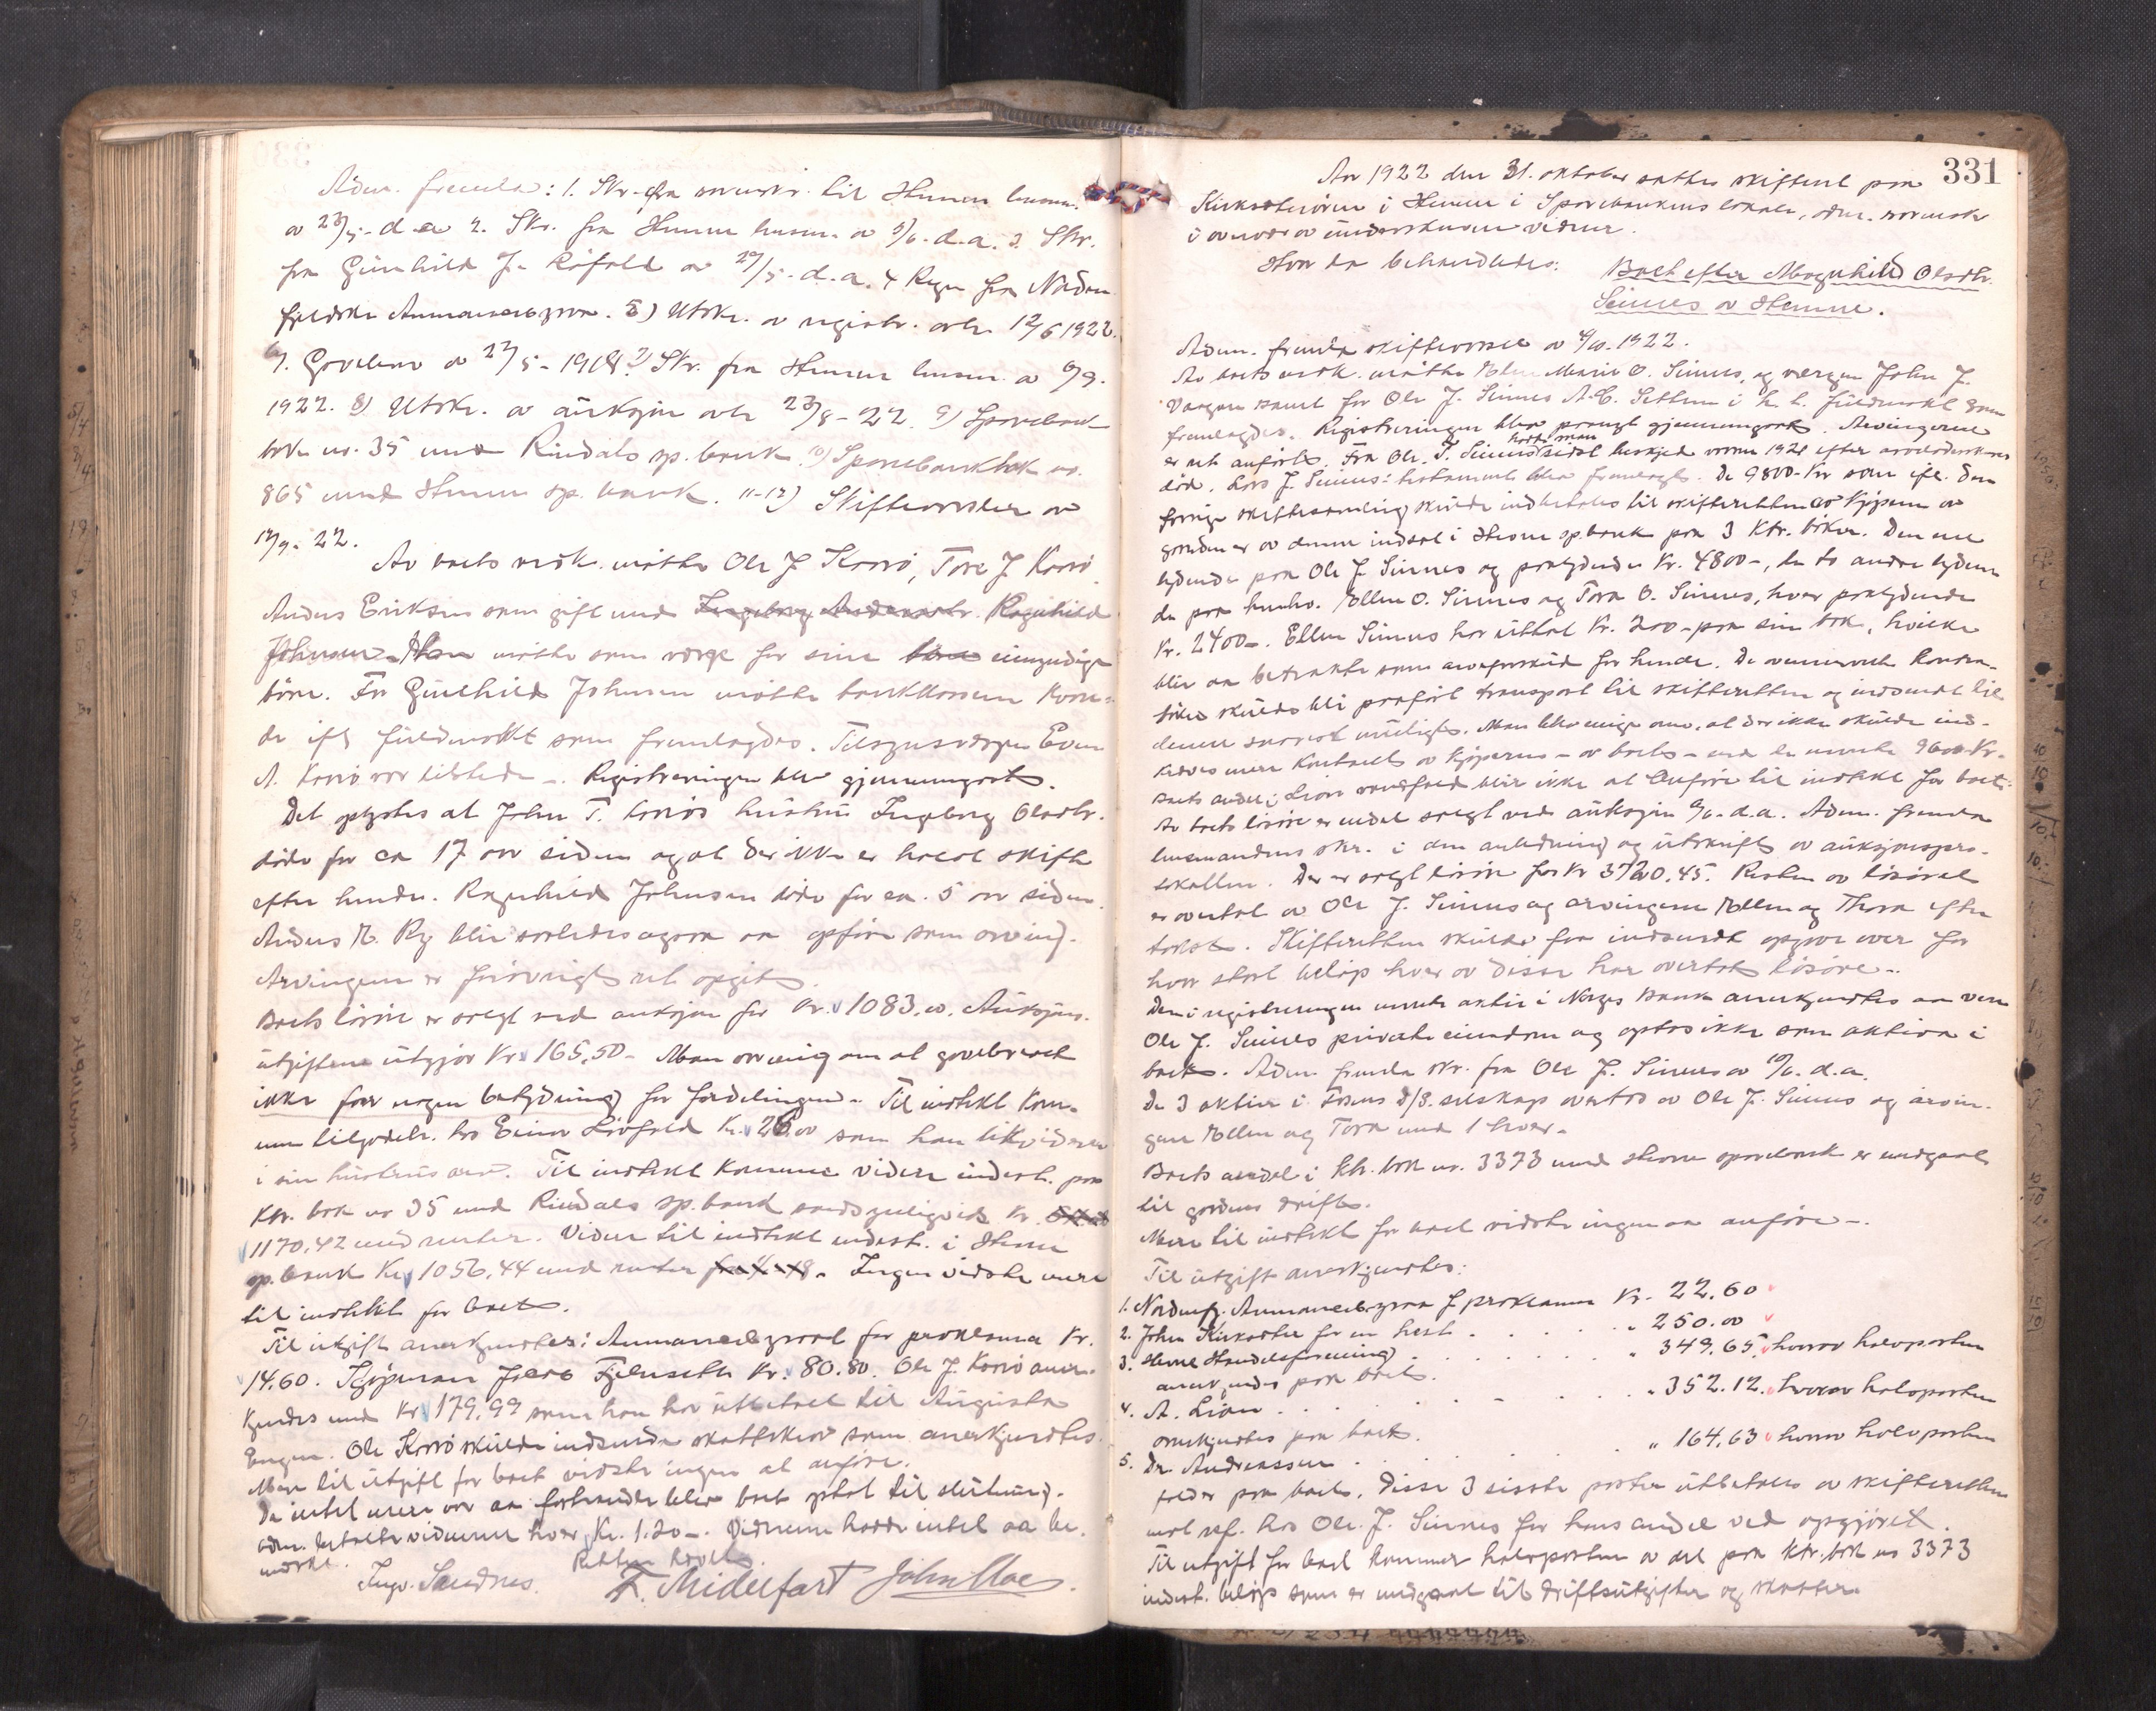 Adm. fremla: 1. Skr. fra sorenskr. til Hemne lensm.
av 23/5. d.a. 2. Skr. fra Hemne lensm. av 5/6. d.a. 3. Skr.
fra Gunhild J. Råfald av 29/5. d.a. 4 Regn fra Norden-
fjeldske Annonsebyraa. 5) Utskr. av registr. avh. 12/6 1922.
6). Gavebrev av 27/5 - 1918. 7) Skr. fra Hemne lensm. av 6/9.
1922. 8) Utskr. av auksjon avh 23/8 - 22. 9) Sparebank
bok nr. 35 med Rindals sp. bank. 10) Sparebankbok nr.
865 med Hemne sp. bank. 11-12) Skiftevarsler av
12/9. 22.
Av boets vedk. møtte Ole J Korsø, Tore J Korsø
Anders Eriksen som gift med Ingeborg Andersdtr. Ragnhild
Johnsen. Han møtte som verge for sine umyndige
børn. For Gunhild Johnsen møtte bankkasserer
ifl. fuldmakt som fremlagdes. Tilsynsvergen Even
A. Korsø var tilstede. Registreringen blev gjennemgaat.
Det oplystes at John T. Korsøs hustru Ingeborg Olsdtr.
døde for ca 17 aar siden og at der ikke er holdt skifte
efter hende. Ragnhild Johnsen døde for ca. 5 aar siden.
Anders E. Ry blir saaledes ogsaa aa opføre som arving.
Arvingene er forøvrigt ret opgit.
Boets løsøre er solgt ved auksjon for kr. 1083.00. Auksjons-
utgiftene utgjør Kr. 165.50. Man var enig om at gavebrevet
ikke faar nogen betydning for fordelingen. Til indtekt kom-
mer tilgodeh. hos Einar Livfald Kr. 26.00 som han likviderer
i sin hustrus arv. Til indtekt kommer videre indest. paa
Ktr. bok nr 35 med Rindals sp. bank sandsynligvis kr.
1170.42 med renter. Videre til indtekt indest. i Hemne
sp. bank Kr. 1056.44 med renter. Ingen vidste mere
til indtekt for boet.
Til utgift anerkjendtes: Annonsebyraaet for proklama Kr.
14.60. Kjøpman Jacob Fjelnseth Kr. 80.80. Ole J. Korsø aner-
kjendes med Kr 179.99 som han har utbetalt til Augusta
Engen. Ole Korsø skulde indsende skatteskrav som anerkjendtes.
Mere til utgift for boet vidste ingen at anføre.
Da intet mere var aa forhandle blev boet optat til slutning.
Adm. betalte vidnerne hver Kr. 1.20. Vidnerne hadde intet aa be-
merke. Retten hævet.
Ingv. Sandnes. F. Midelfart John Moe.

331
Aar 1922 den 31. oktober sattes skifteret paa
Kirksæterøren i Hemne i Sparebankens lokale, adm. sorenskr
i overvær av underskrevne vidner.
Hvor da behandledes: Boet efter Magnhild Olsdtr.
Sinnes av Hemne.
Adm. fremla skiftevarsel av 4/10. 1922.
Av boets vedk. møtte Ellen Marie O. Sinnes, og vergen John J.
Vaagan samt for Ole J. Sinnes A. C. Settem i h. t. fuldmakt som
fremlagdes. Registreringen blev paanyt gjennemgaat. Arvingerne
er ret anført. Fra Ole J. Sinnes hadde man sidst beskjed 1921 efter
død. Lars J. Sinnes: testamente blev fremlagt. De 9800 Kr som ifl. den
forrige skiftesamling skulde indbetales til skifteretten av kjøperen av
gaarden er av denne indsat i Hemne sp.bank paa 3 ktr. bøker. Den ene
lydende paa Ole J. Sinnes og paalydende Kr. 4800-, de to andre lyden-
de paa henhv. Ellen O. Sinnes og Tora O. Sinnes, hver paalydende
Kr. 2400-. Ellen Sinnes har uttat Kr. 200- paa sin bok, hvilke
blir aa betrakte som arveforskud for hende. De ovennevnte kontra-
bøker skulde bli paaført transport til skifteretten og indsendt til
denne snarest muligst. Man blev enige om, at der ikke skulde ind-
kreves mere kontant av kjøperen - av boets - end de nevnte 9600 Kr.
Boets andel i Lian vandfald blir ikke at anføre til indtekt for boet.
Av boets løsøre er endel solgt ved auksjon 6/6. d.a. Adm. fremla
lensmandens skr. i den anledning og utskrift av auksjonspro-
tokollen. Der er solgt løsøre for Kr 3720.45. Resten av løsøret
er overtat av Ole J. Sinnes og arvingene Ellen og Thora efter
takst. Skifteretten skulde faa indsendt opgave over for
hvor stort beløp hver av disse har overtat løsøre.
Den i registreringen nevnte aktie i Norges Bank anerkjendtes aa være
Ole J. Sinnes private eiendom og optas ikke som aktiva i
boet. Adm. fremla skr. fra Ole J. Sinnes av 10/6. d.a.
De 3 aktier i Fosens D/S. selskap overtas av Ole J. Sinnes og arvin-
gene Ellen og Tora med 1 hver.
Boets andel i ktr. bok nr. 3373 med Hemne sparebank er medgaat
til gaardens drift.
Mere til indtekt for boet vidste ingen aa anføre.
Til utgift anerkjendtes:
1. Nordenfj. Annonsebyraa f. proklama Kr. 22.60
2. John Kirksæter for en hest . . . " 250.00
3. Hemne Handelsforening . . . " 349.65, hvorav halvparten
anerkjendes paa boet.
4. A. Lian . . . " 352.12. hvorav halvparten
anerkjendtes paa boet.
5. Dr. Andreassen . . . " 164.63 hvorav halvparten
falder paa boet. Disse 3 sidste poster utbetales av skifteretten
mot ref. hos Ole J. Sinnes for hans andel ved opgjøret.
Til utgift for boet kommer halvparten av det paa ktr. bok nr 3373
indest. beløp som er medgaat til driftsutgifter og skatter.